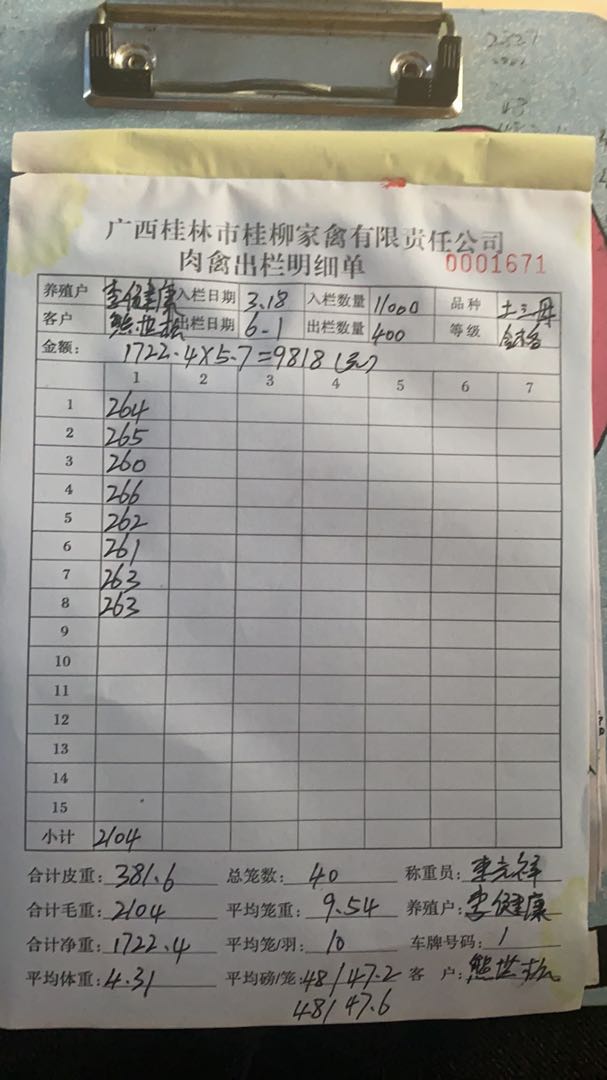 广西桂林市桂柳家禽有限责任公司
肉禽出栏明细单 0001671
养殖户 李健康 入栏日期 3.18 入栏数量 11000 品种 土三丹
客户 熊世松 出栏日期 6-1 出栏数量 400 等级
金额: 1722.4×5.7=9818
1 2 3 4 5 6 7
1 264
2 265
3 260
4 266
5 262
6 261
7 263
8 263
9
10
11
12
13
14
15
小计 2104
合计皮重: 381.6 总笼数: 40 称重员: 李光祥
合计毛重: 2104 平均笼重: 9.54 养殖户: 李健康
合计净重: 1722.4 平均笼/羽: 10 车牌号码: 1
平均体重: 4.31 平均磅/笼: 48/47.2 客 户: 熊世松
48/47.6